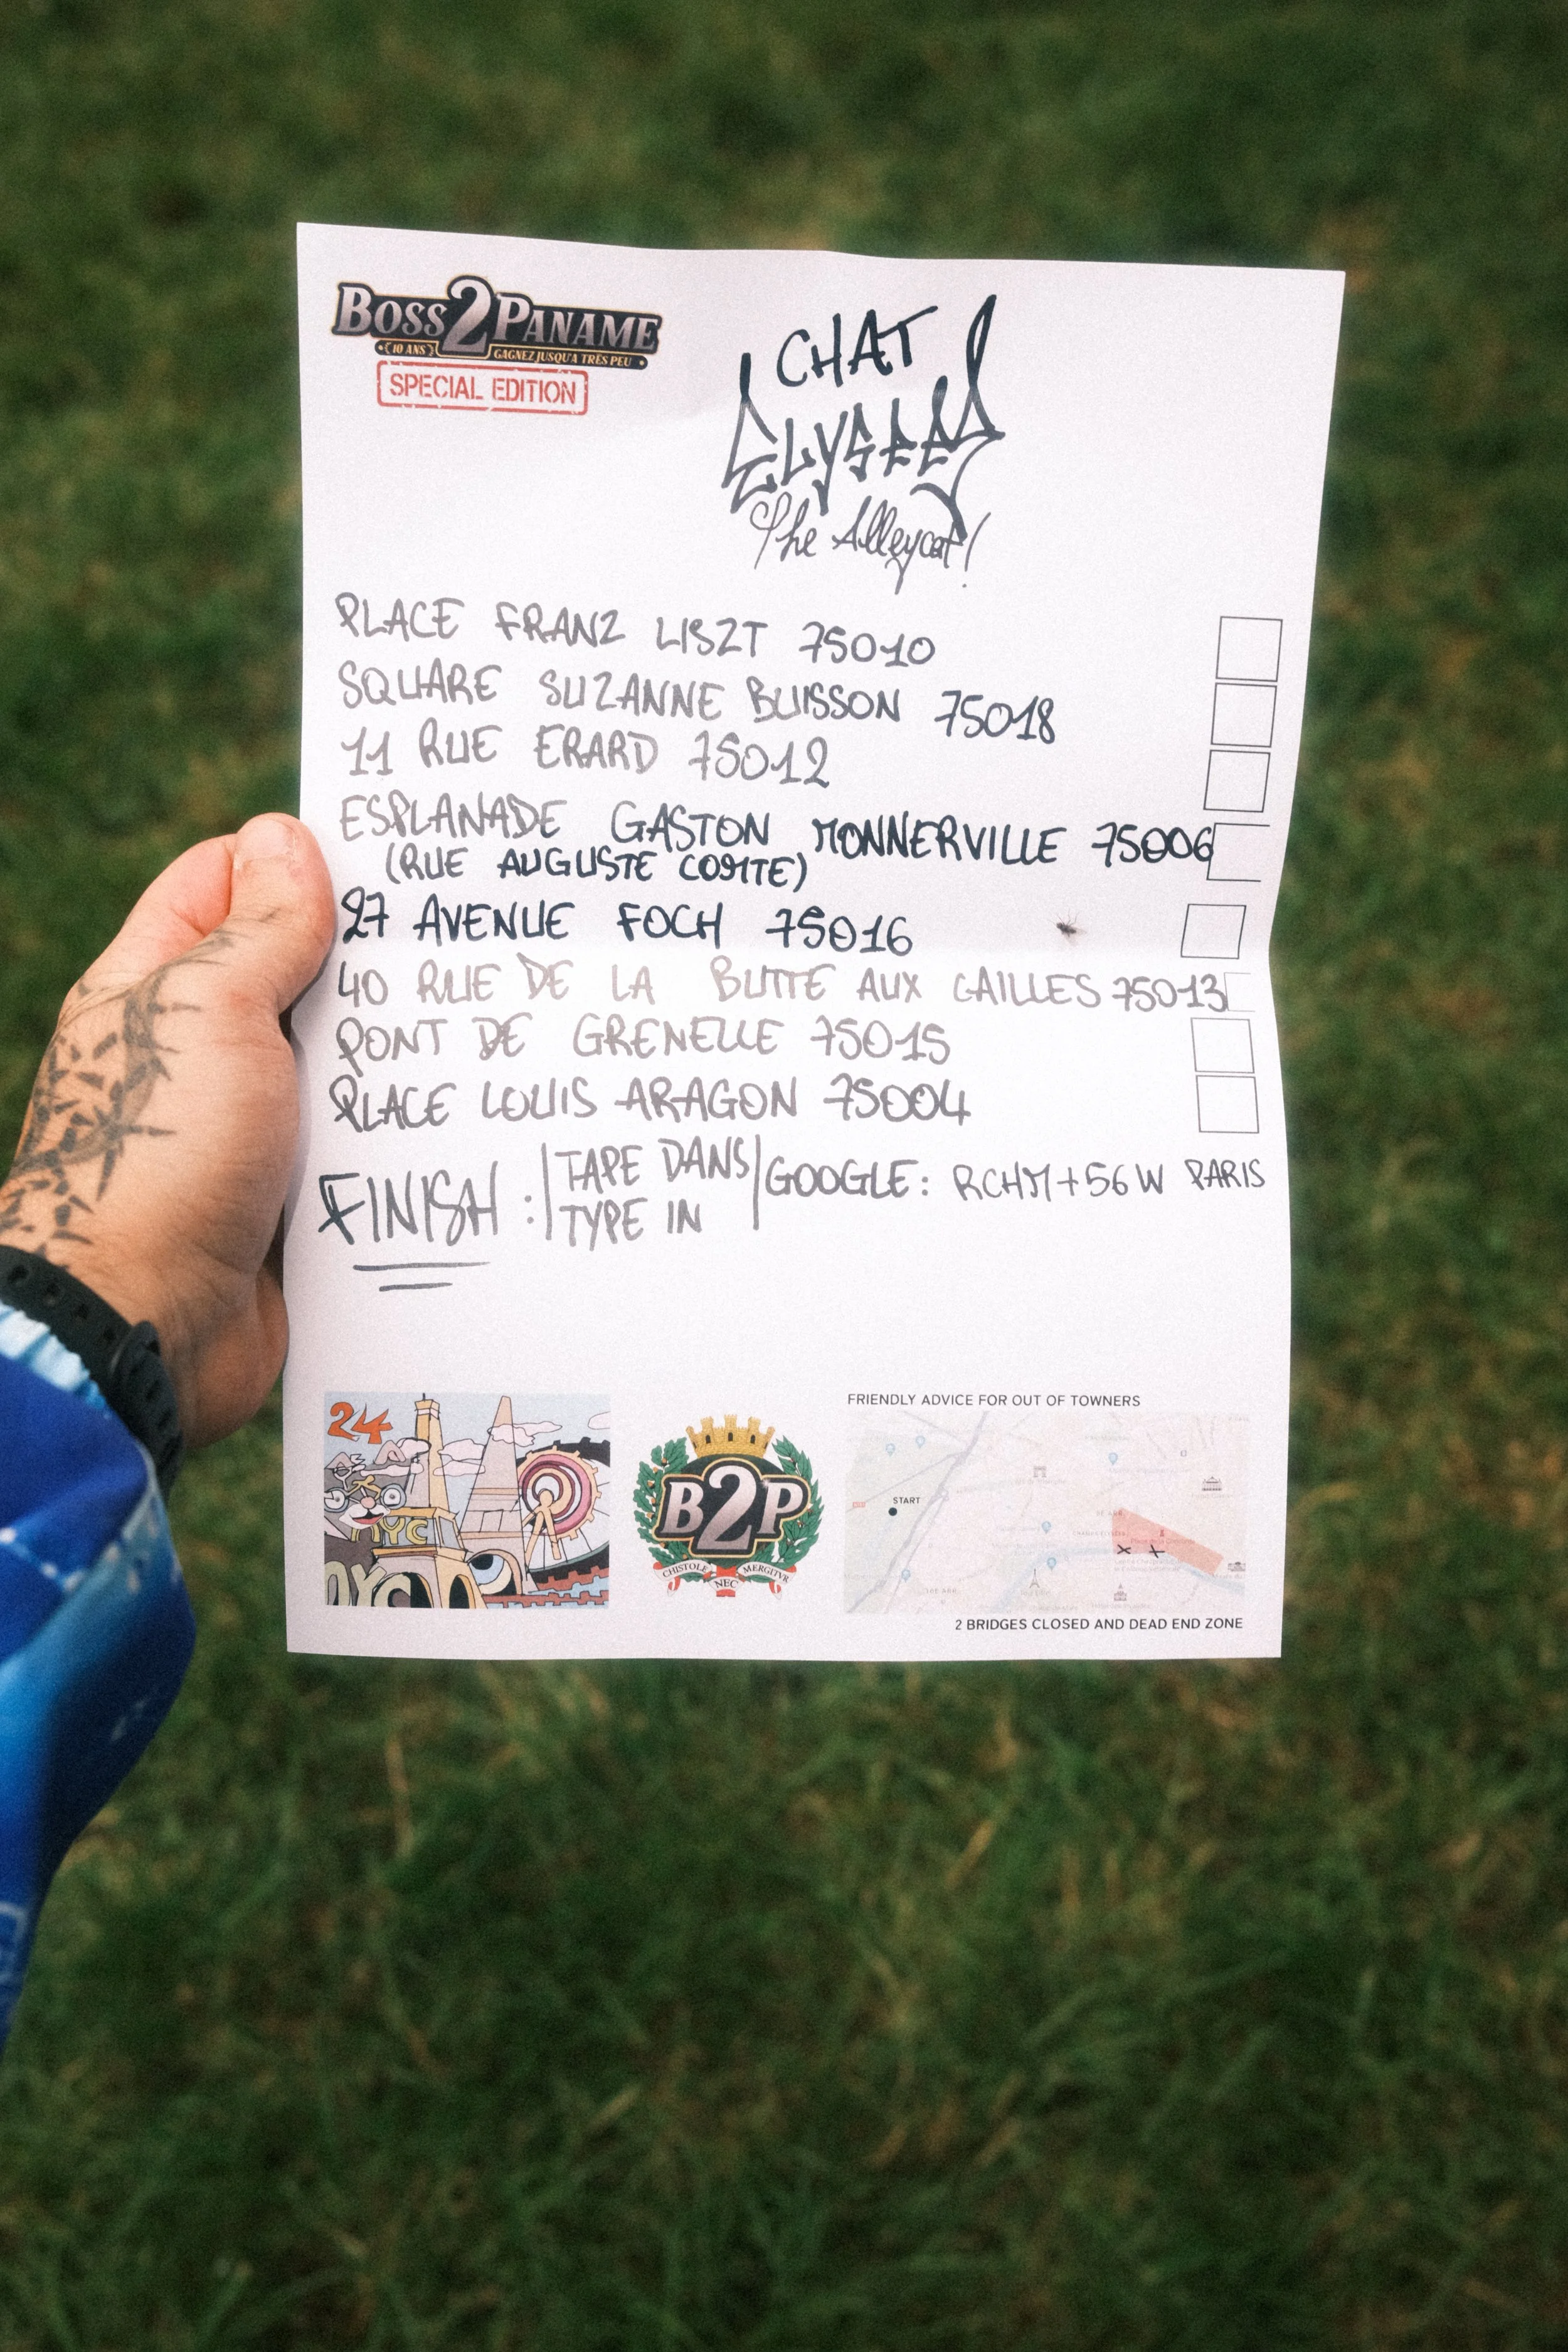 BOSS 2 PANAME
10 ANS GAGNEZ JUSQU'A TRÈS PEU
SPECIAL EDITION
CHAT
ELYSEES
The Alleycat!
PLACE FRANZ LISZT 75010
SQUARE SUZANNE BUISSON 75018
11 RUE ERARD 75012
ESPLANADE GASTON MONNERVILLE 75006
(RUE AUGUSTE COMTE)
27 AVENUE FOCH 75016
40 RUE DE LA BUTTE AUX CAILLES 75013
PONT DE GRENELLE 75015
PLACE LOUIS ARAGON 75004
FINISH : | TAPE DANS | GOOGLE: RCHM+56W PARIS
TYPE IN
24
NYC
NYC
B2P
CHISTOLE NEC MERGITVR
FRIENDLY ADVICE FOR OUT OF TOWNERS
START
2 BRIDGES CLOSED AND DEAD END ZONE